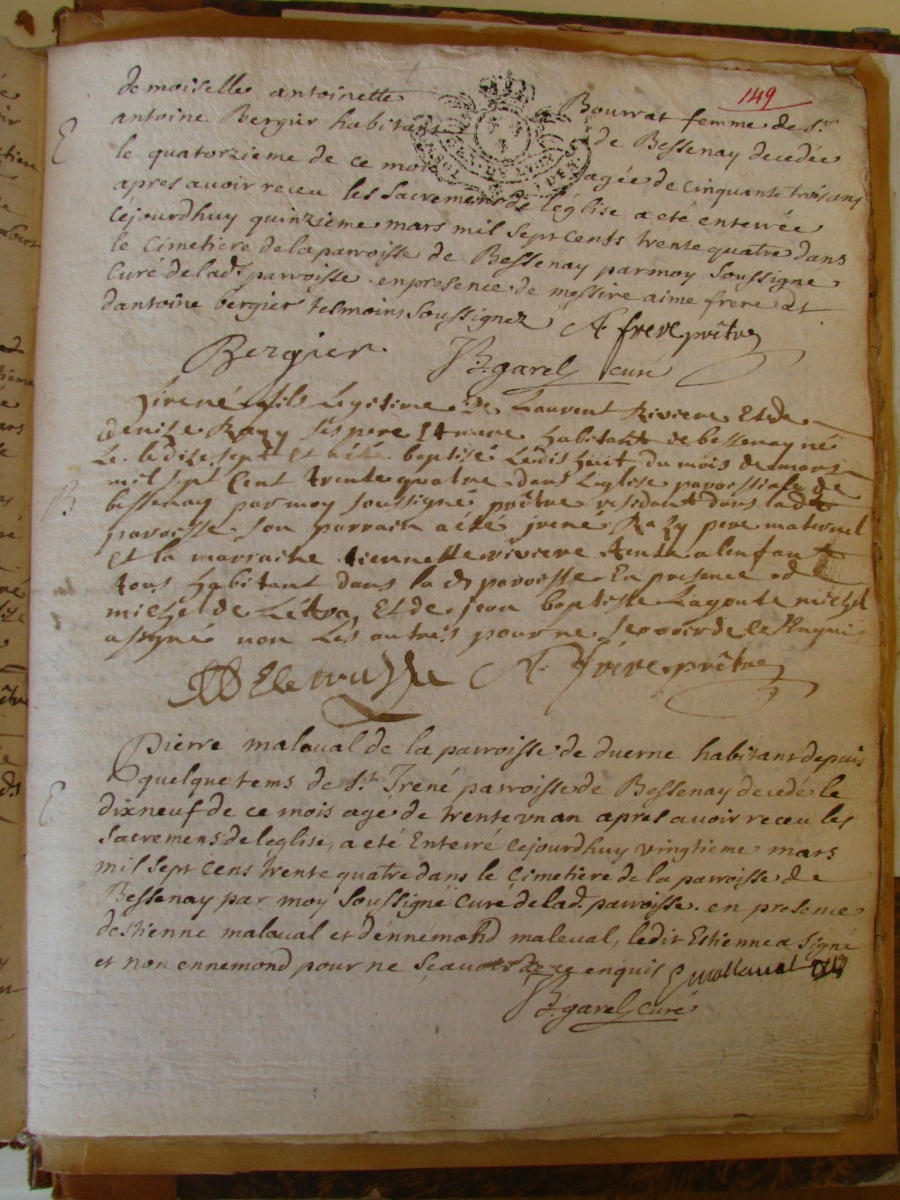 149
demoiselle antoinette Bourrat femme de Sr.
antoine Bergier habitant de Bessenay decedée
E
le quatorzieme de ce mois agée de cinquante trois ans
apres avoir receu les Sacremens de l'église a eté enterrée
cejourdhuy quinzieme mars mil sept cents trente quatre dans
le cimetière de la parroisse de Bessenay par moy Soussigné
Curé de lad. parroisse en presence de messire aime frere et
dantoine bergier tesmoins Soussignez A frere prêtre
Bergier JB garel curé
Jirené fils Legitime de Laurent Riviere Et de
denise Razy ses père Et mere habitant de bessenay né
Le le dize sept Et a été baptisé Le dis huit du mois de mars
mil sept Cent trente quatre dans Leglise paroissiale de
B
bessenay par moy soussigné prêtre residant dans lad.
paroisse son parrain a été jrene Razy pere maternel
Et la marraine tiennette riviere tente a lenfant
tous habitant dans la d. paroisse En presence de
michel de Et de jean baptiste Lagoute michel
a signé non Les autres pour ne scavoir de ce Enquis
A. frere prêtre
Pierre malaval de la parroisse de duerne habitant depuis
quelque tems de St. Irené parroisse de Bessenay decedé le
E
dixneuf de ce mois agé de trente un an apres avoir receu les
Sacremens de leglise, a eté Enterré cejourdhuy vingtieme mars
mil sept cens trente quatre dans le cimetiere de la parroisse de
Bessenay par moy Soussigné curé de lad. parroisse. en presence
destienne malaval et dennemond malaval, ledit Estienne a Signé
et non ennemond pour ne Scavoir de ce enquis E mallaval
JB garel curé